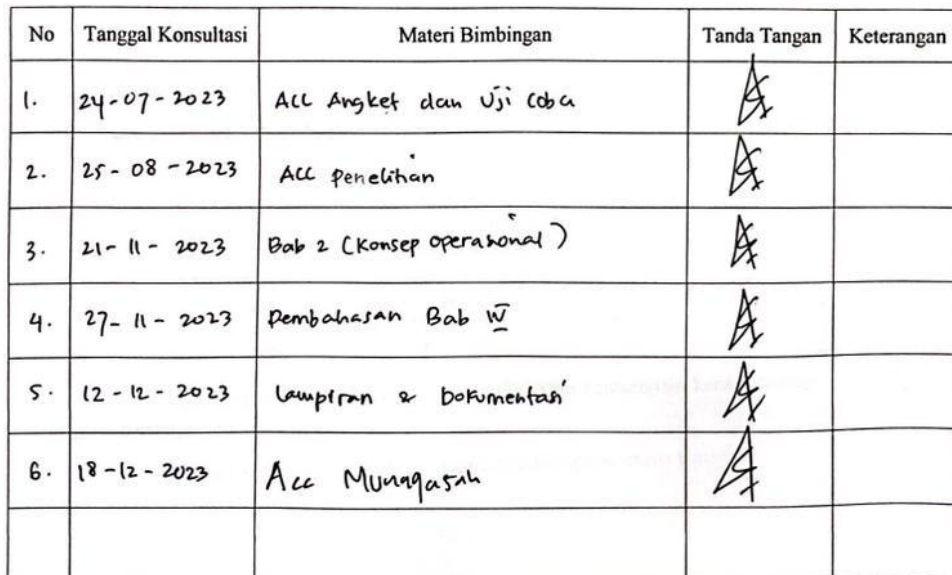 No Tanggal Konsultasi Materi Bimbingan Tanda Tangan Keterangan
1. 24-07-2023 ACC Angket dan Uji Coba
2. 25-08-2023 ACC Penelitian
3. 21-11-2023 Bab 2 (Konsep Operasional)
4. 27-11-2023 Pembahasan Bab IV
5. 12-12-2023 Lampiran & Dokumentasi
6. 18-12-2023 Acc Munaqasah